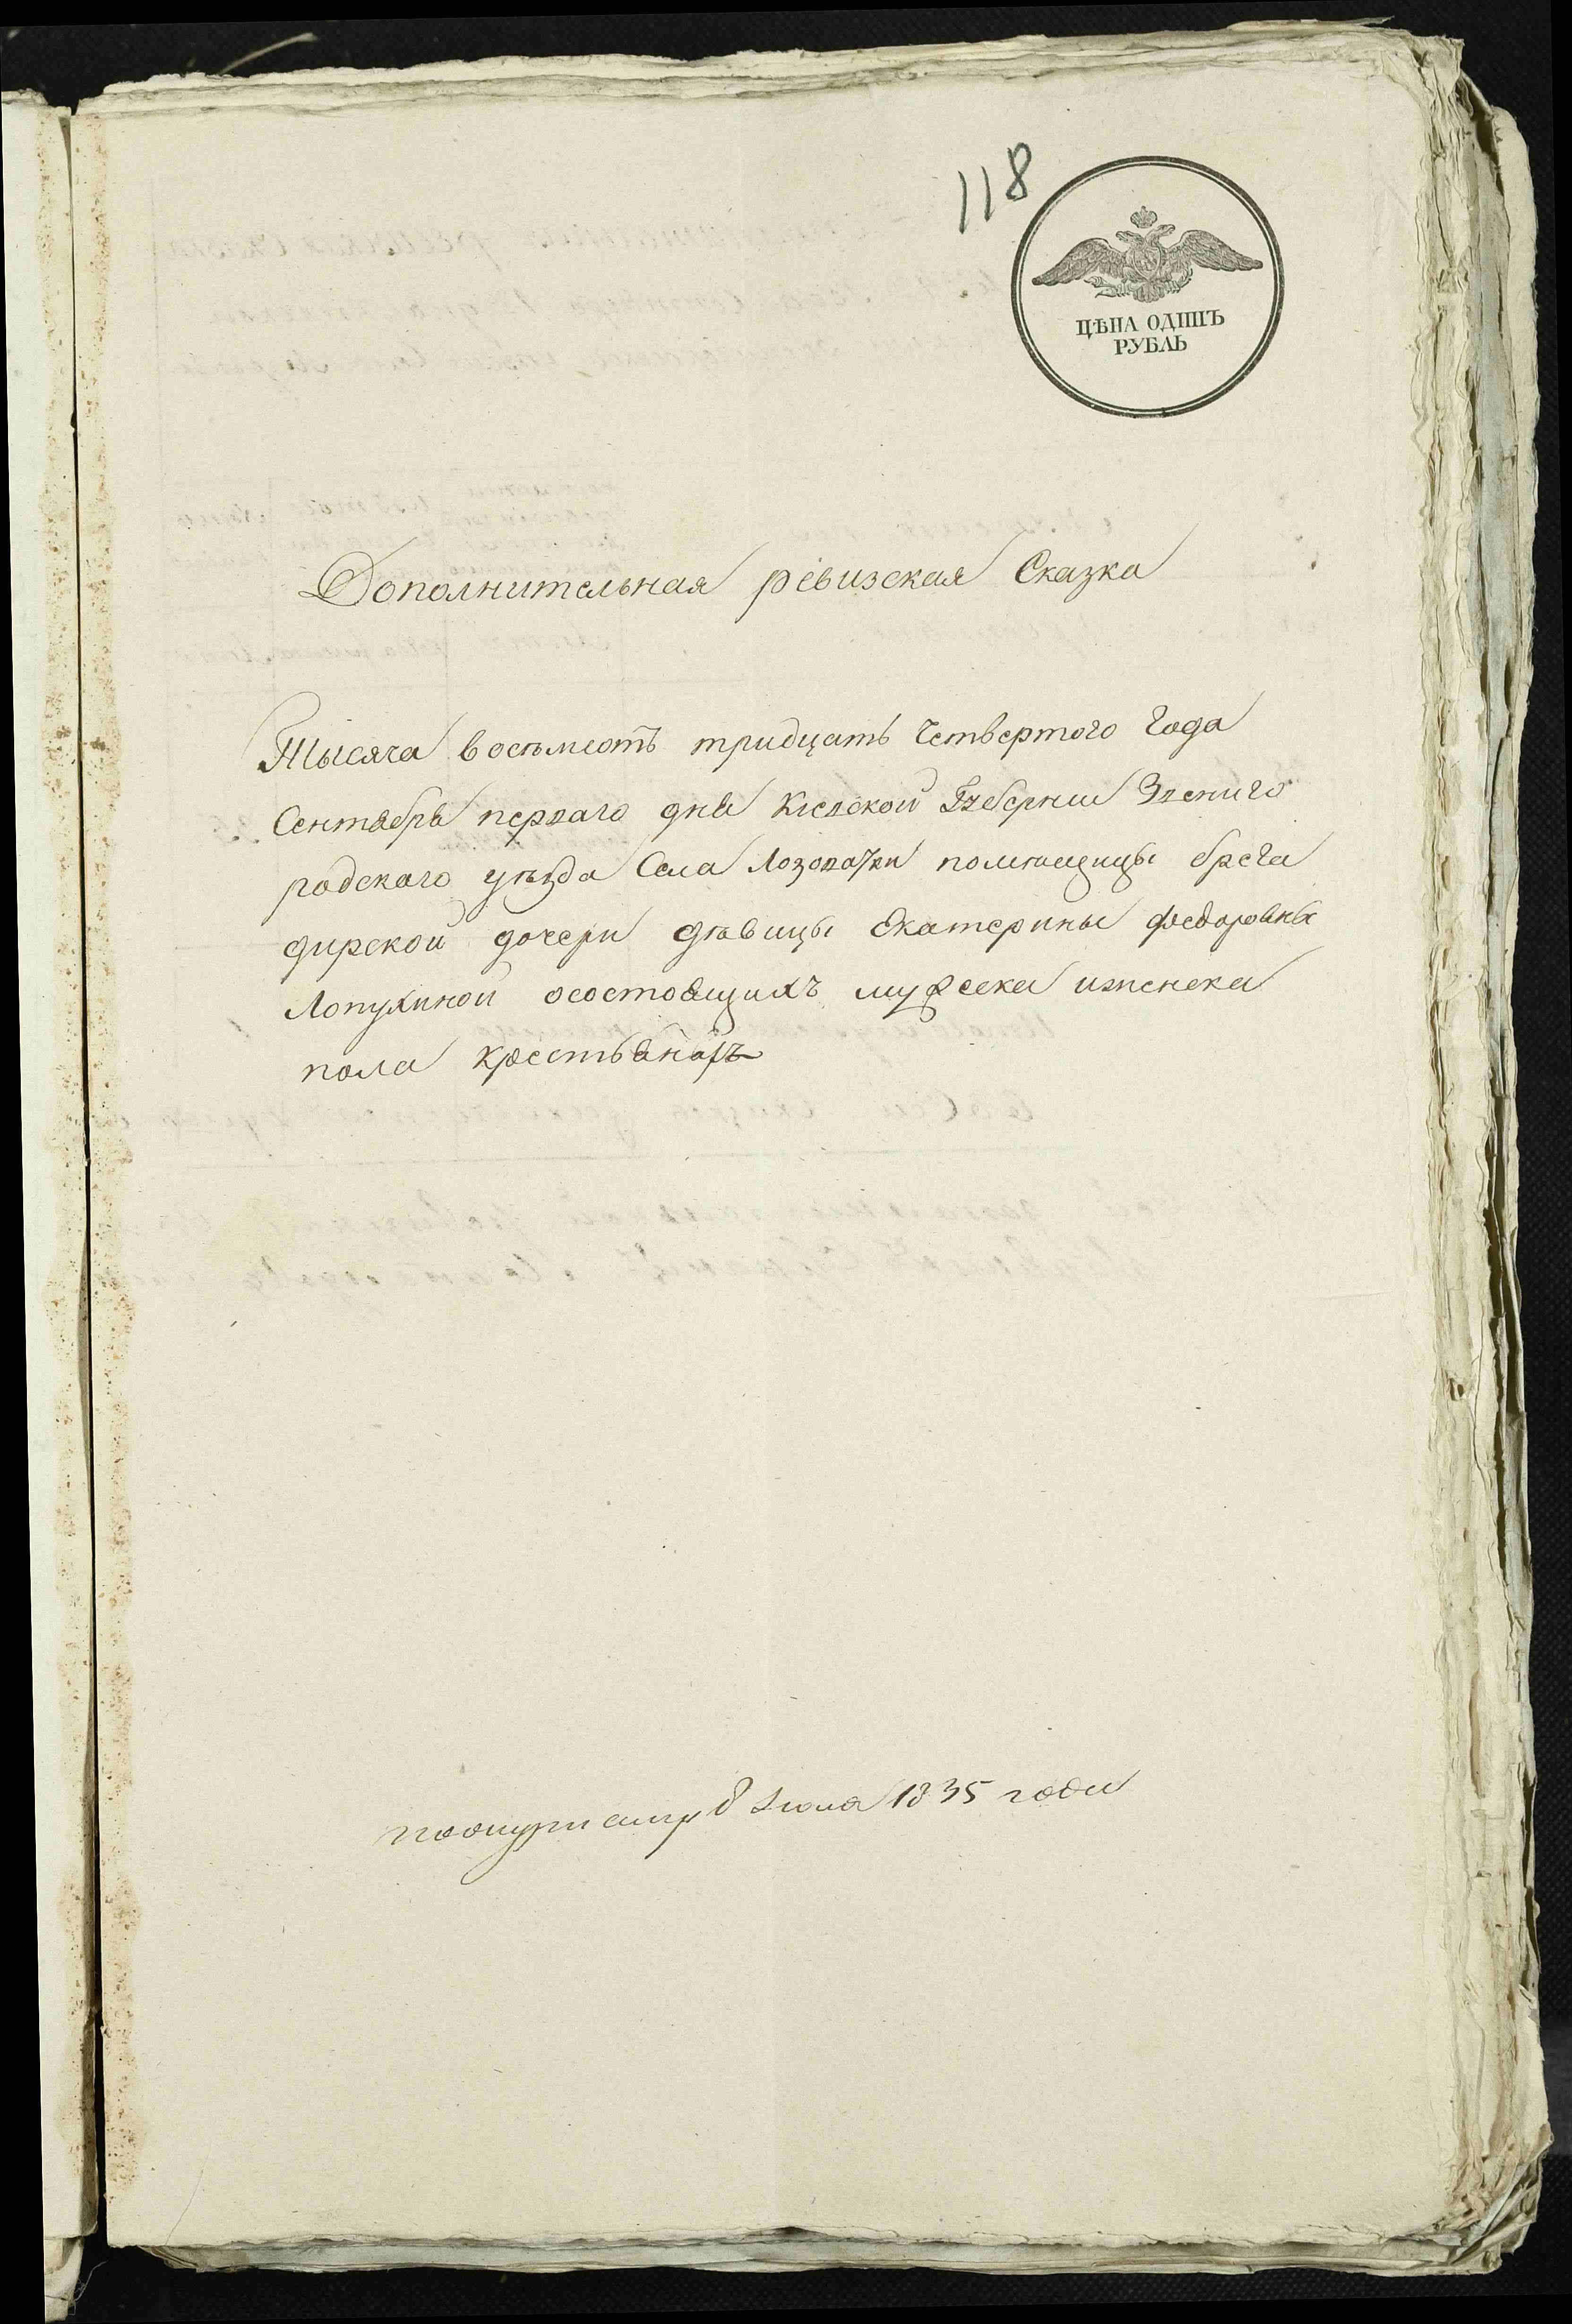 118
ЦѢНА ОДИНЪ
РУБЛЬ
Дополнительная ревизская Сказка
Тысяча восемсотъ тридцать Четвертого Года
Сентября перваго дня Кіевской Губерніи Звениго
родскаго уѣзда Села Лозоватки помѣщицы брега
дирской дочери дѣвицы Екатерины Федоровны
Лопухиной осостоящихъ мужеска иженска
пола крестьянахъ
1835 года